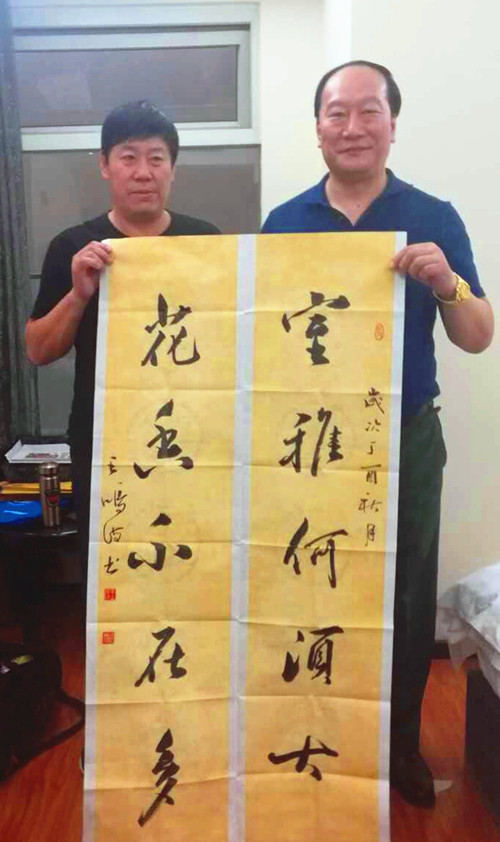 室雅何須大
歲次丁酉秋月
花香不在多
王鳴海书